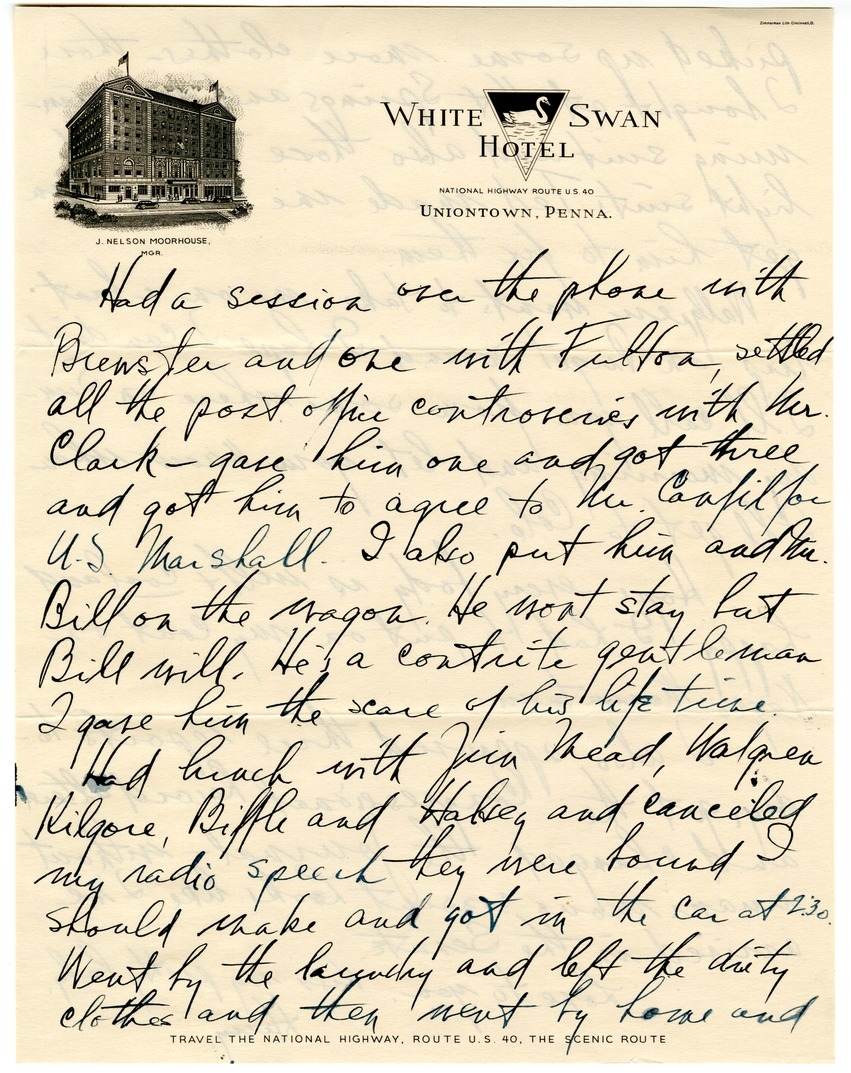 Zimmerman Lith Cincinnati, O.
WHITE SWAN
HOTEL
NATIONAL HIGHWAY ROUTE U.S. 40
UNIONTOWN, PENNA.
J. NELSON MOORHOUSE,
MGR.
Had a session over the phone with
Brewster and one with Fulton, settled
all the post office controseries with Mr.
Clark – gave him one and got three
and got him to agree to Mr. Canfil for
U.S. Marshall. I also put him and Mr.
Bill on the wagon. He wont stay but
Bill will. He's a contrite gentleman
I gave him the scare of his life time.
Had lunch with Jim Mead, Walgren
Kilgore, Biffle and Halsey and canceled
my radio speech they were bound I
should make and got in the car at 2:30.
Went by the laundry and left the dirty
clothes and then went by home and
TRAVEL THE NATIONAL HIGHWAY, ROUTE U.S. 40, THE SCENIC ROUTE